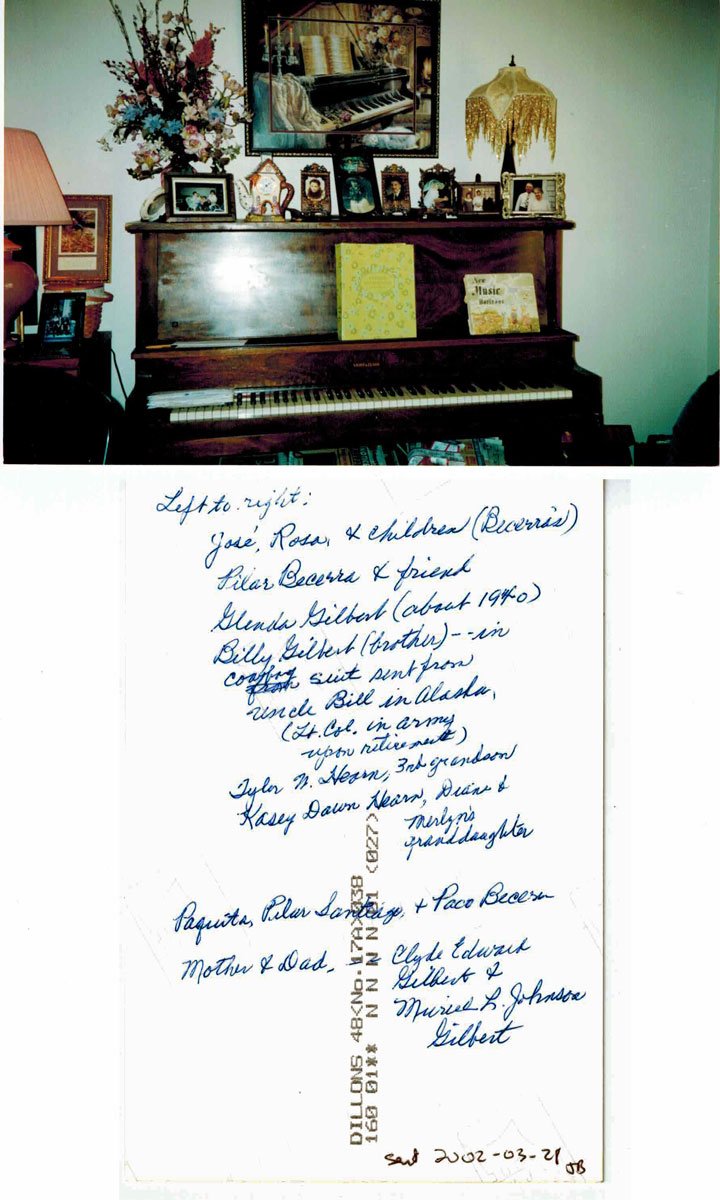 New
Music
Horizons
Left to right:
José, Rosa, & children (Becerra's)
Pilar Becerra & friend
Glenda Gilbert (about 1940)
Billy Gilbert (brother) -- in
cowboy suit sent from
Uncle Bill in Alaska,
(Lt. Col. in army
upon retirement)
Tyler N. Hearn, 3rd grandson
Kasey Dawn Hearn, Diane &
Merlyn's
granddaughter
Paquita, Pilar Santiago, & Paco Becerra
Mother & Dad, -- Clyde Edward
Gilbert &
Muriel L. Johnson
Gilbert
DILLONS 48<No.17A>038
160 01** N N N N 01 (027)
sent 2002-03-21
JB